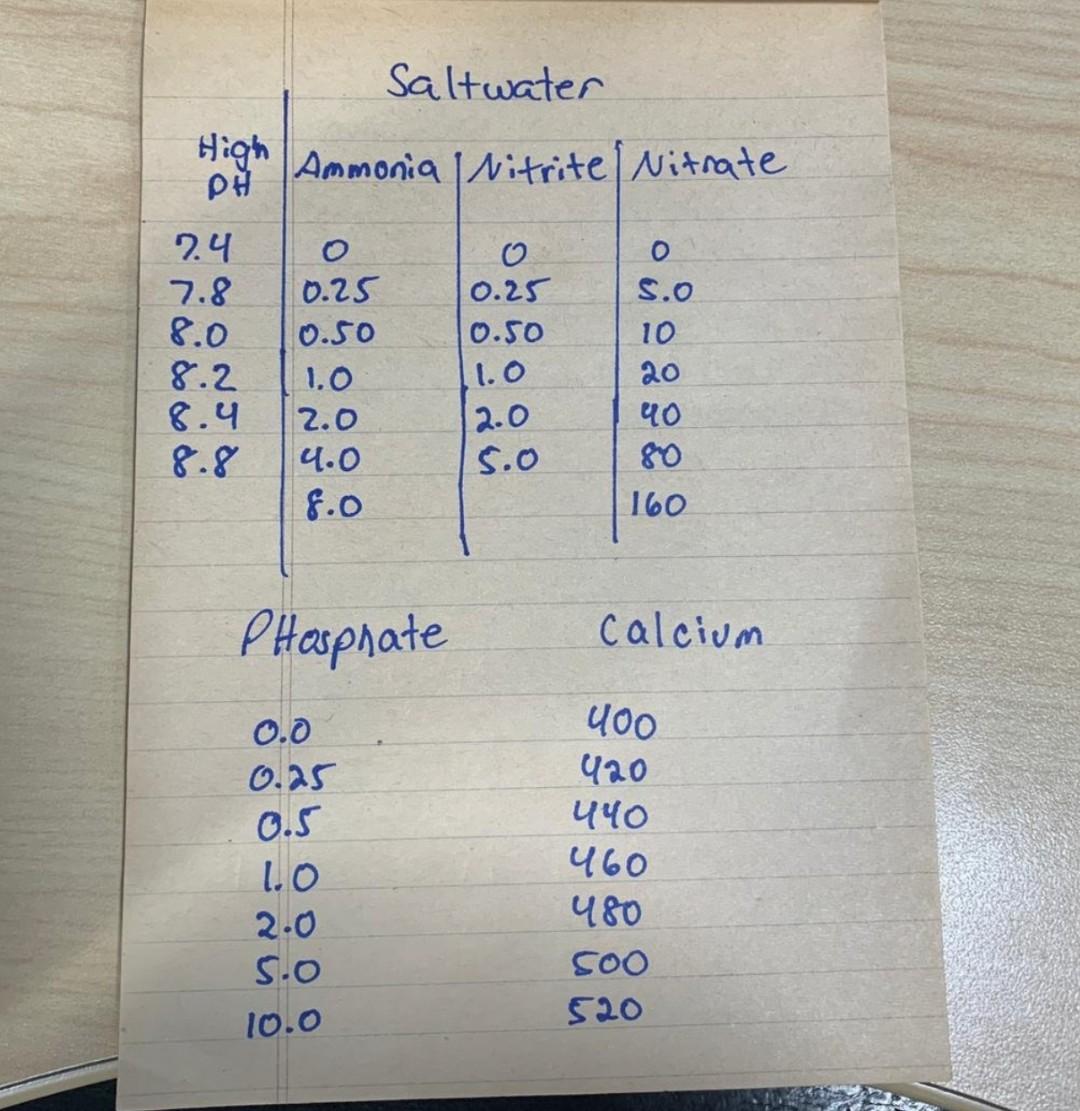 Saltwater
High PH | Ammonia | Nitrite | Nitrate
7.4 0 0 0
7.8 0.25 0.25 5.0
8.0 0.50 0.50 10
8.2 1.0 1.0 20
8.4 2.0 2.0 40
8.8 4.0 5.0 80
8.0 160
PHosphate Calcium
0.0 400
0.25 420
0.5 440
1.0 460
2.0 480
5.0 500
10.0 520